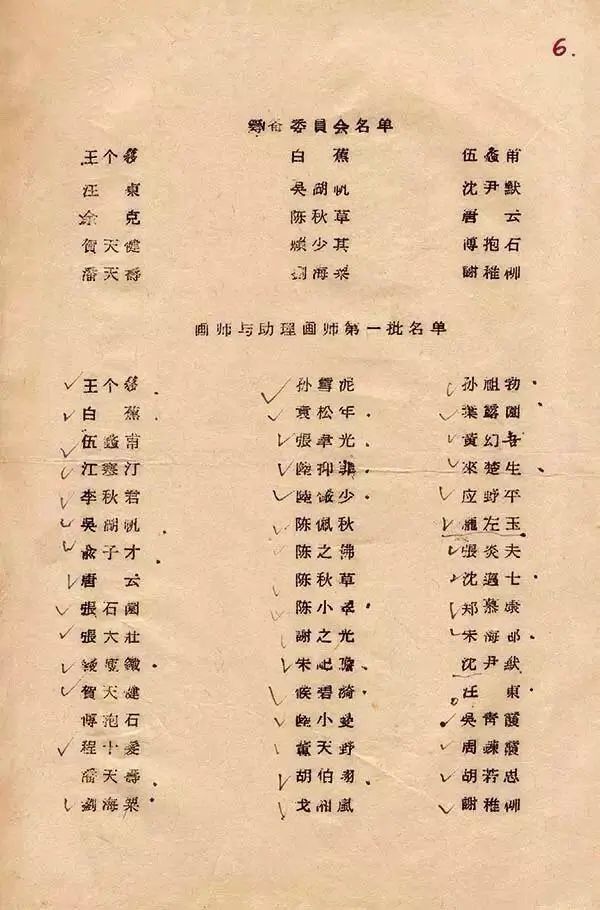 6.
筹备委員会名单
王个簃 白蕉 伍蠡甫
汪東 吳湖帆 沈尹默
余克 陈秋草 唐云
賀天健 賴少其 傅抱石
潘天壽 劉海粟 謝稚柳
画师与助理画师第一批名单
王个簃 孙雪泥 孙祖勃
白蕉 袁松年 葉露園
伍蠡甫 張聿光 黃幻吾
江寒汀 陸抑非 來楚生
李秋君 陸儼少 应野平
吳湖帆 陈佩秋 龐左玉
俞子才 陈之佛 張炎夫
唐云 陈秋草 沈邁士
張石園 陈小翠 郑慕康
張大壯 謝之光 朱梅邨
綾靈鐵 朱屺瞻 沈尹默
賀天健 侯碧漪 汪東
傅抱石 陸小曼 吳青霞
程十髮 董天野 周鍊霞
潘天壽 胡伯翔 胡若思
劉海粟 戈湘嵐 謝稚柳